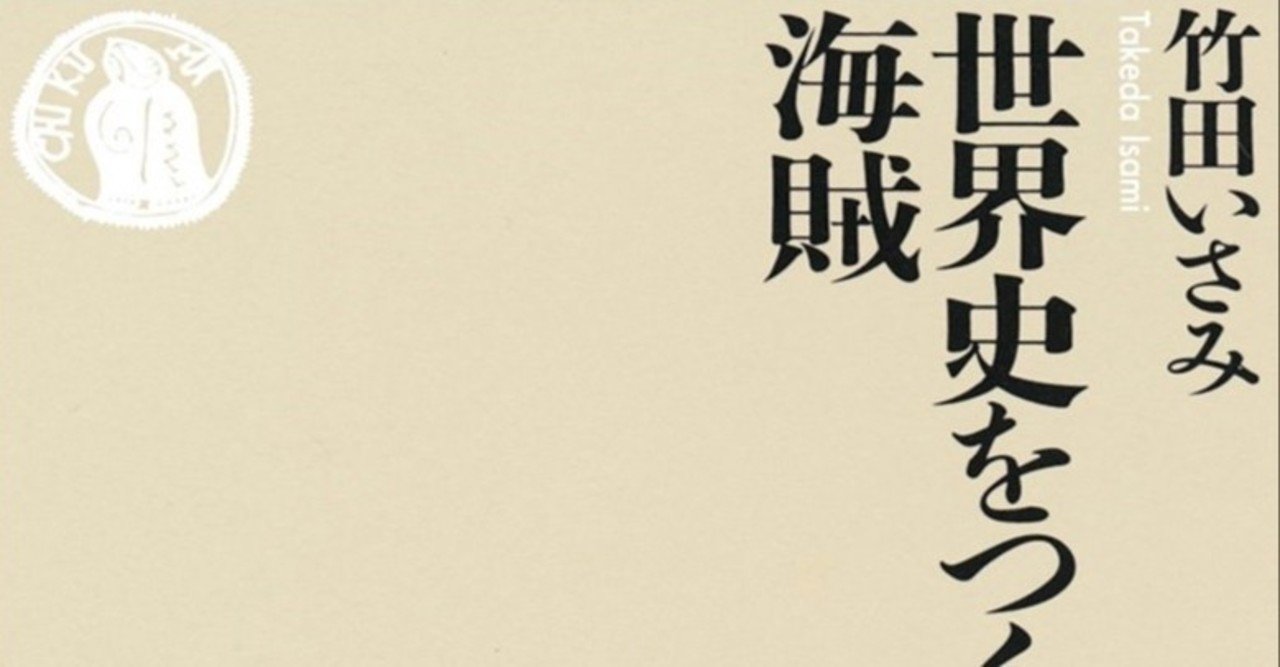 竹田いさみ
Takeda Isami
世界史をつく
海賊
CHIKUMA